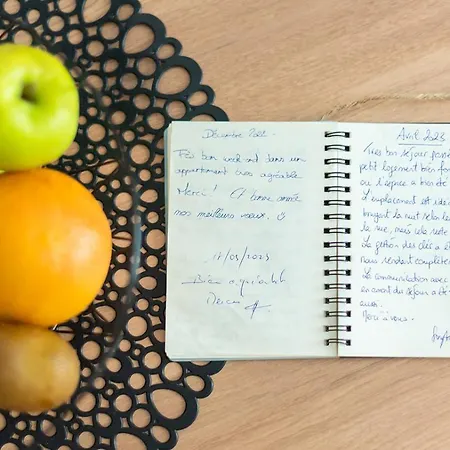 Décembre 2022.
Très bon week-end dans un
appartement très agréable
Merci ! Et bonne année
nos meilleurs vœux.
17/03/2023
Bien
Merci
Avril 2023
Très bon séjour
petit logement bien
ou l'espace a bien été
L'emplacement est
bruyant la nuit selon
la rue, mais cela reste
La gestion des clés a
nous rendent
La communication avec
en amont du séjour a été
aussi.
Merci à vous.